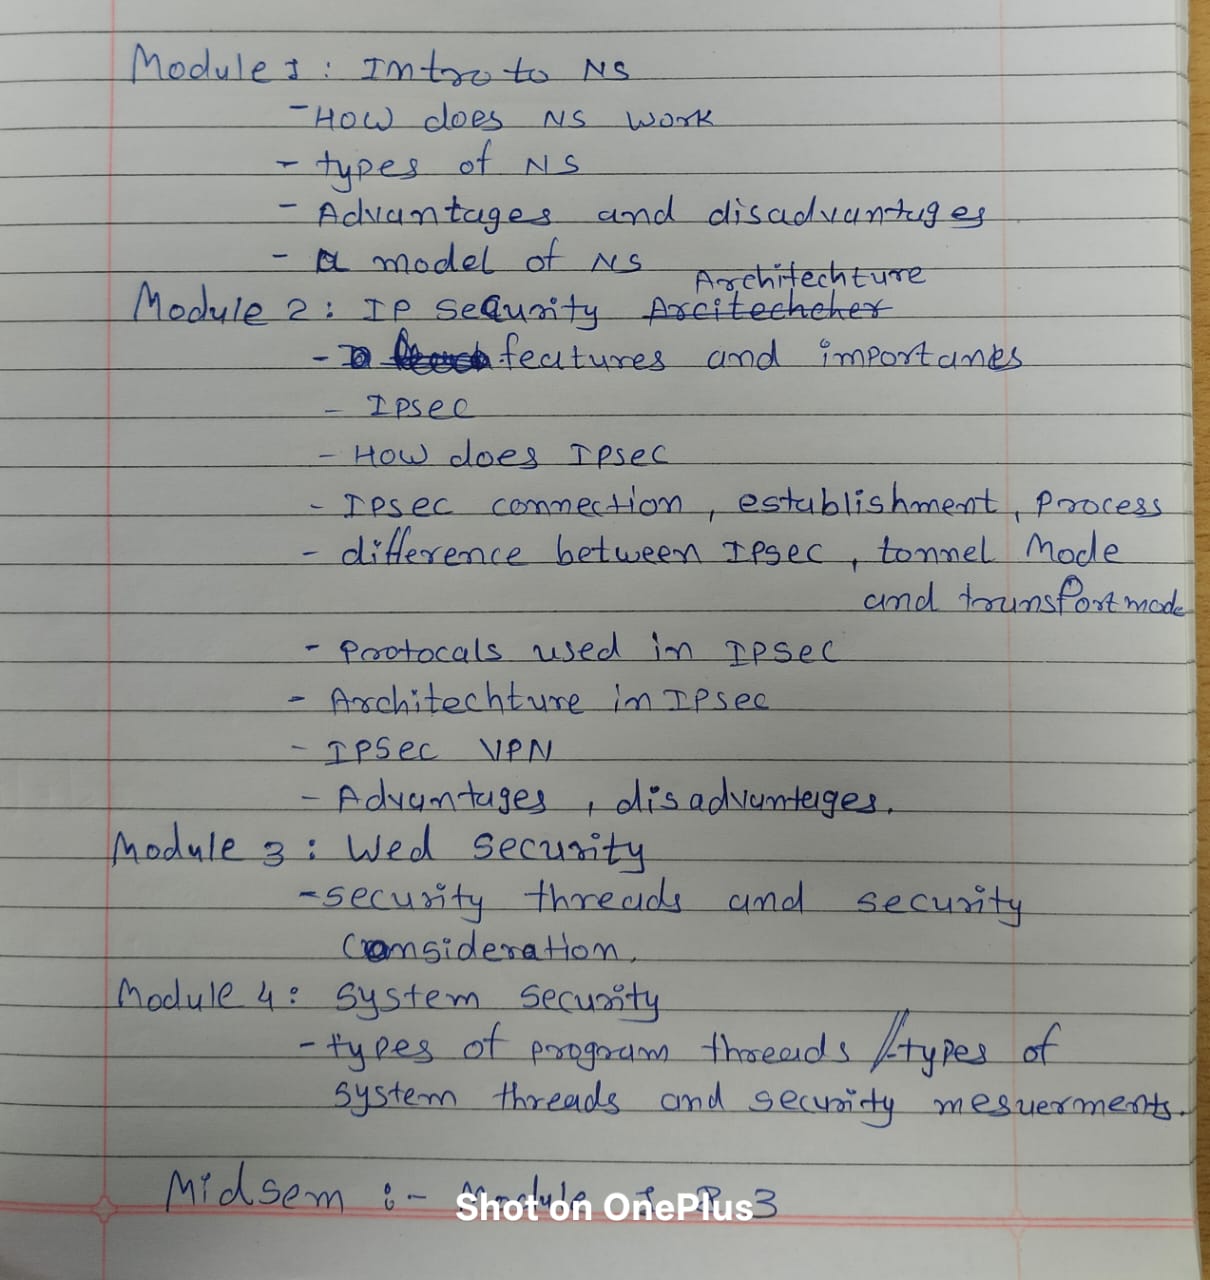 Module 1 : Intro to NS
- How does NS work
- types of NS
- Advantages and disadvantages
- a model of NS
Architechture
Module 2 : IP Sequrity Arcitecheher
- features and importanes
- Ipsec
- How does Ipsec
- Ipsec connection, establishment, process
- difference between Ipsec, tonnel Mode
and transport mode
- Protocals used in IPSec
- Architechture in IPsec
- IPSec VPN
- Advantages, disadvantages.
Module 3 : Wed Security
- security threads and security
Consideration.
Module 4 : System Security
- types of program threads / - types of
system threads and security mesuerments.
Midsem :- Module 3
Shot on OnePlus